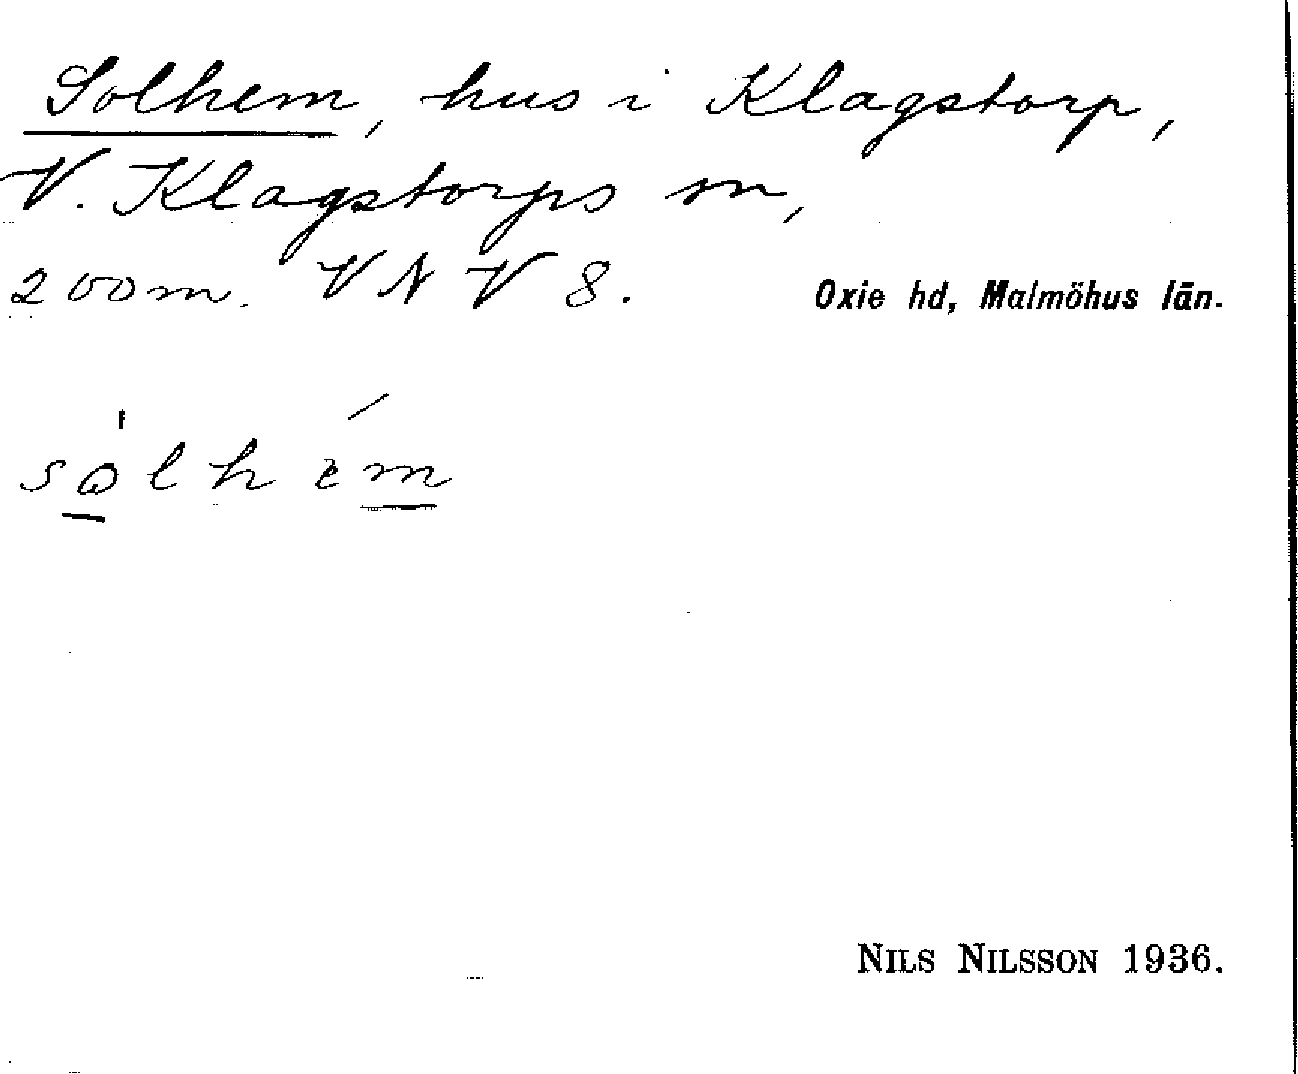 Solhem, hus i Klagstorp,
V. Klagstorps sn,
200 m. VNV 8.
Oxie hd, Malmöhus län.
solhem
NILS NILSSON 1936.